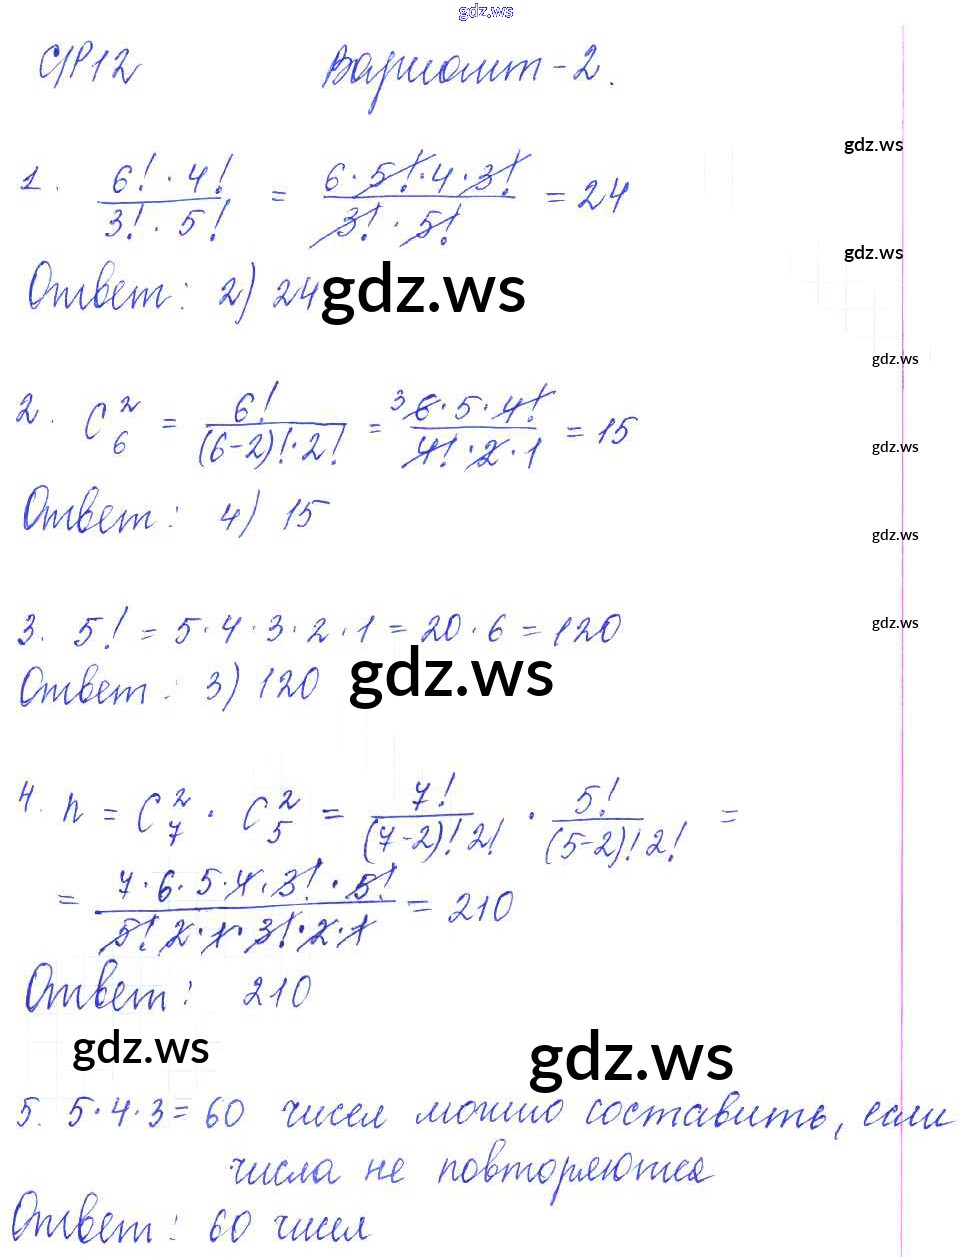 gdz.ws
С/Р12 Вариант-2.
gdz.ws
1. 6!·4! / 3!·5! = 6·5!·4·3! / 3!·5! = 24
gdz.ws
Ответ: 2) 24 gdz.ws
gdz.ws
2. C²₆ = 6! / (6-2)!·2! = ³6·5·4! / 4!·2·1 = 15
gdz.ws
Ответ: 4) 15
gdz.ws
3. 5! = 5·4·3·2·1 = 20·6 = 120
gdz.ws
Ответ: 3) 120 gdz.ws
4. n = C²₇ · C²₅ = 7! / (7-2)!2! · 5! / (5-2)!2! =
= 7·6·5·4·3!·5! / 5!2·1·3!·2·1 = 210
Ответ: 210
gdz.ws gdz.ws
5. 5·4·3=60 чисел можно составить, если
числа не повторяются
Ответ: 60 чисел